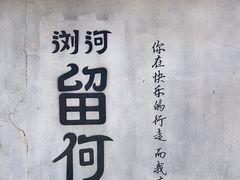 浏河
留何
你在快乐的行走 而我